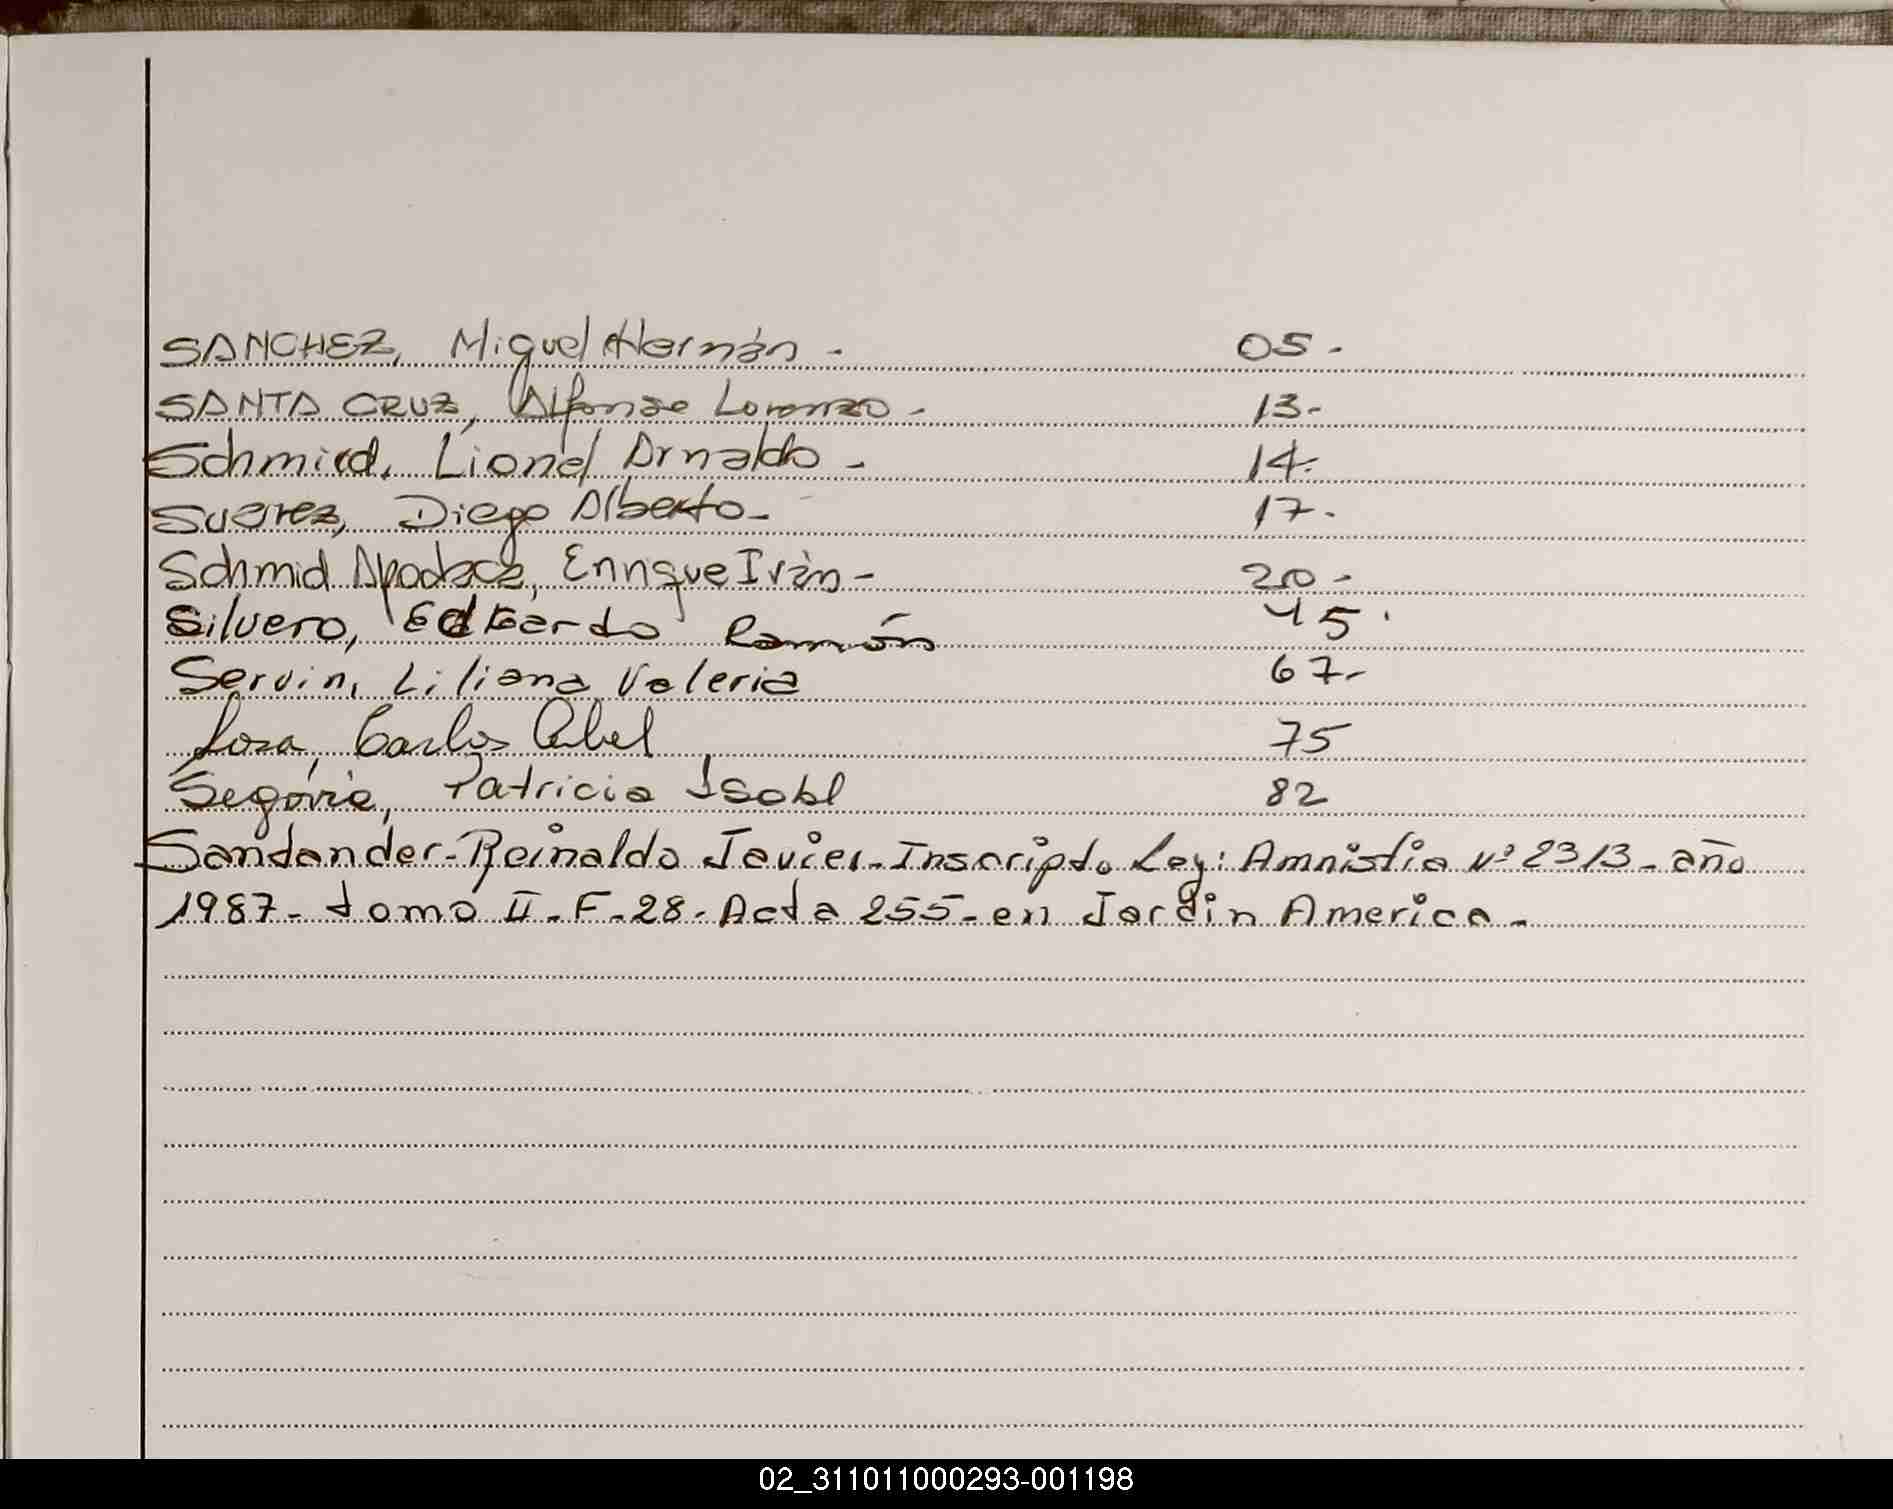 SANCHEZ, Miguel Hernán - 05 -
SANTA CRUZ, Alfonso Lorenzo - 13 -
Schmied, Lionel Arnaldo - 14 -
Suarez, Diego Alberto - 17 -
Schmid Apodaca, Enrique Iván - 20 -
Silvero, Edgardo Ramón 45 .
Servin, Liliana Valeria 67 -
Sosa, Carlos Abel 75
Segóvia, Patricia Isabel 82
Sandander - Reinaldo Javier - Inscripto Ley: Amnistia Nº 2313 - año
1987 - tomo II - F - 28 - Acta 255 - en Jardin America -
02_311011000293-001198